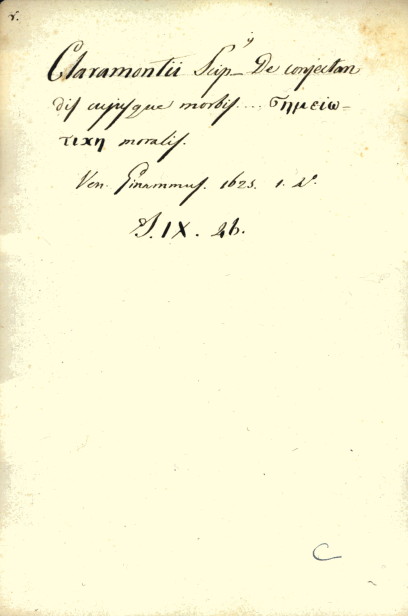 v.
Claramontii Scip_ De conjectan
dis cujusque morbis... σημειω-
τιχη moralis.
Ven. Ginammus. 1625. 1. V.
S. IX. 26.
C